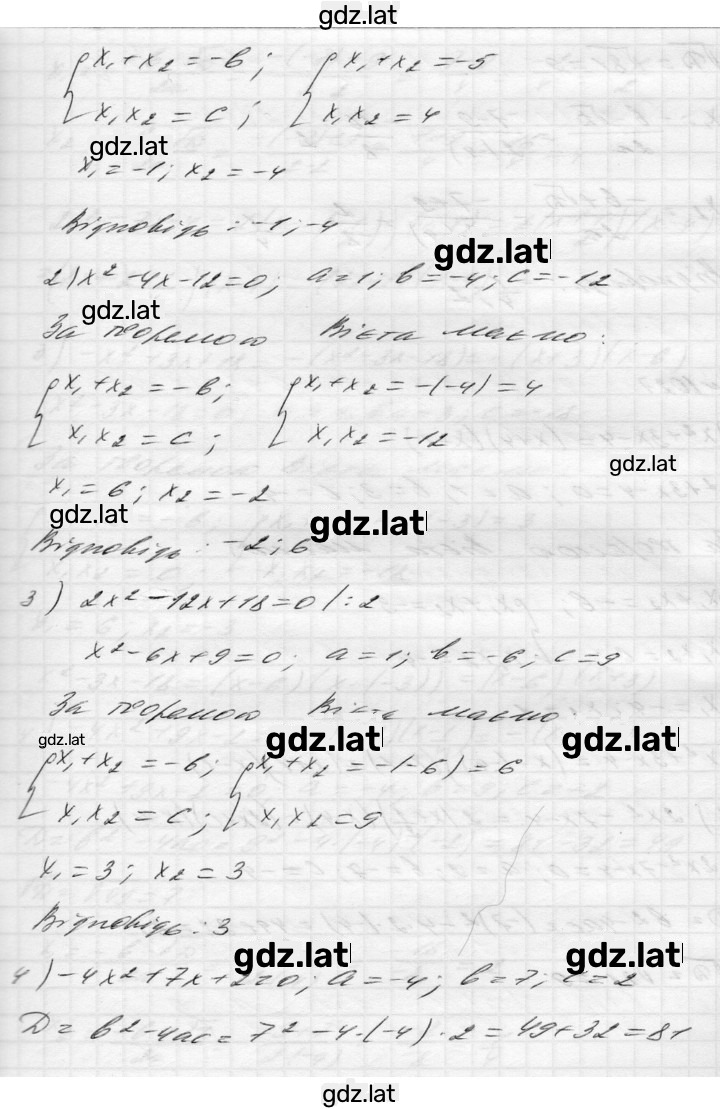 gdz.lat
{ x₁ + x₂ = -b ; { x₁ + x₂ = -5
x₁x₂ = c ; x₁x₂ = 4
gdz.lat
x₁ = -1 ; x₂ = -4
Відповідь : -1 ; -4
gdz.lat
2) x² - 4x - 12 = 0 ; a = 1 ; b = -4 ; c = -12
gdz.lat
За теоремою Вієта маємо :
{ x₁ + x₂ = -b ; { x₁ + x₂ = -(-4) = 4
x₁x₂ = c ; x₁x₂ = -12
gdz.lat
x₁ = 6 ; x₂ = -2
gdz.lat gdz.lat
Відповідь : -2 ; 6
3) 2x² - 12x + 18 = 0 / : 2
x² - 6x + 9 = 0 ; a = 1 ; b = -6 ; c = 9
За теоремою Вієта маємо :
gdz.lat gdz.lat gdz.lat
{ x₁ + x₂ = -b ; { x₁ + x₂ = -(-6) = 6
x₁x₂ = c ; x₁x₂ = 9
x₁ = 3 ; x₂ = 3
Відповідь : 3
gdz.lat gdz.lat
4) -4x² + 7x + 2 = 0 ; a = -4 ; b = 7 ; c = 2
D = b² - 4ac = 7² - 4·(-4)·2 = 49 + 32 = 81
gdz.lat